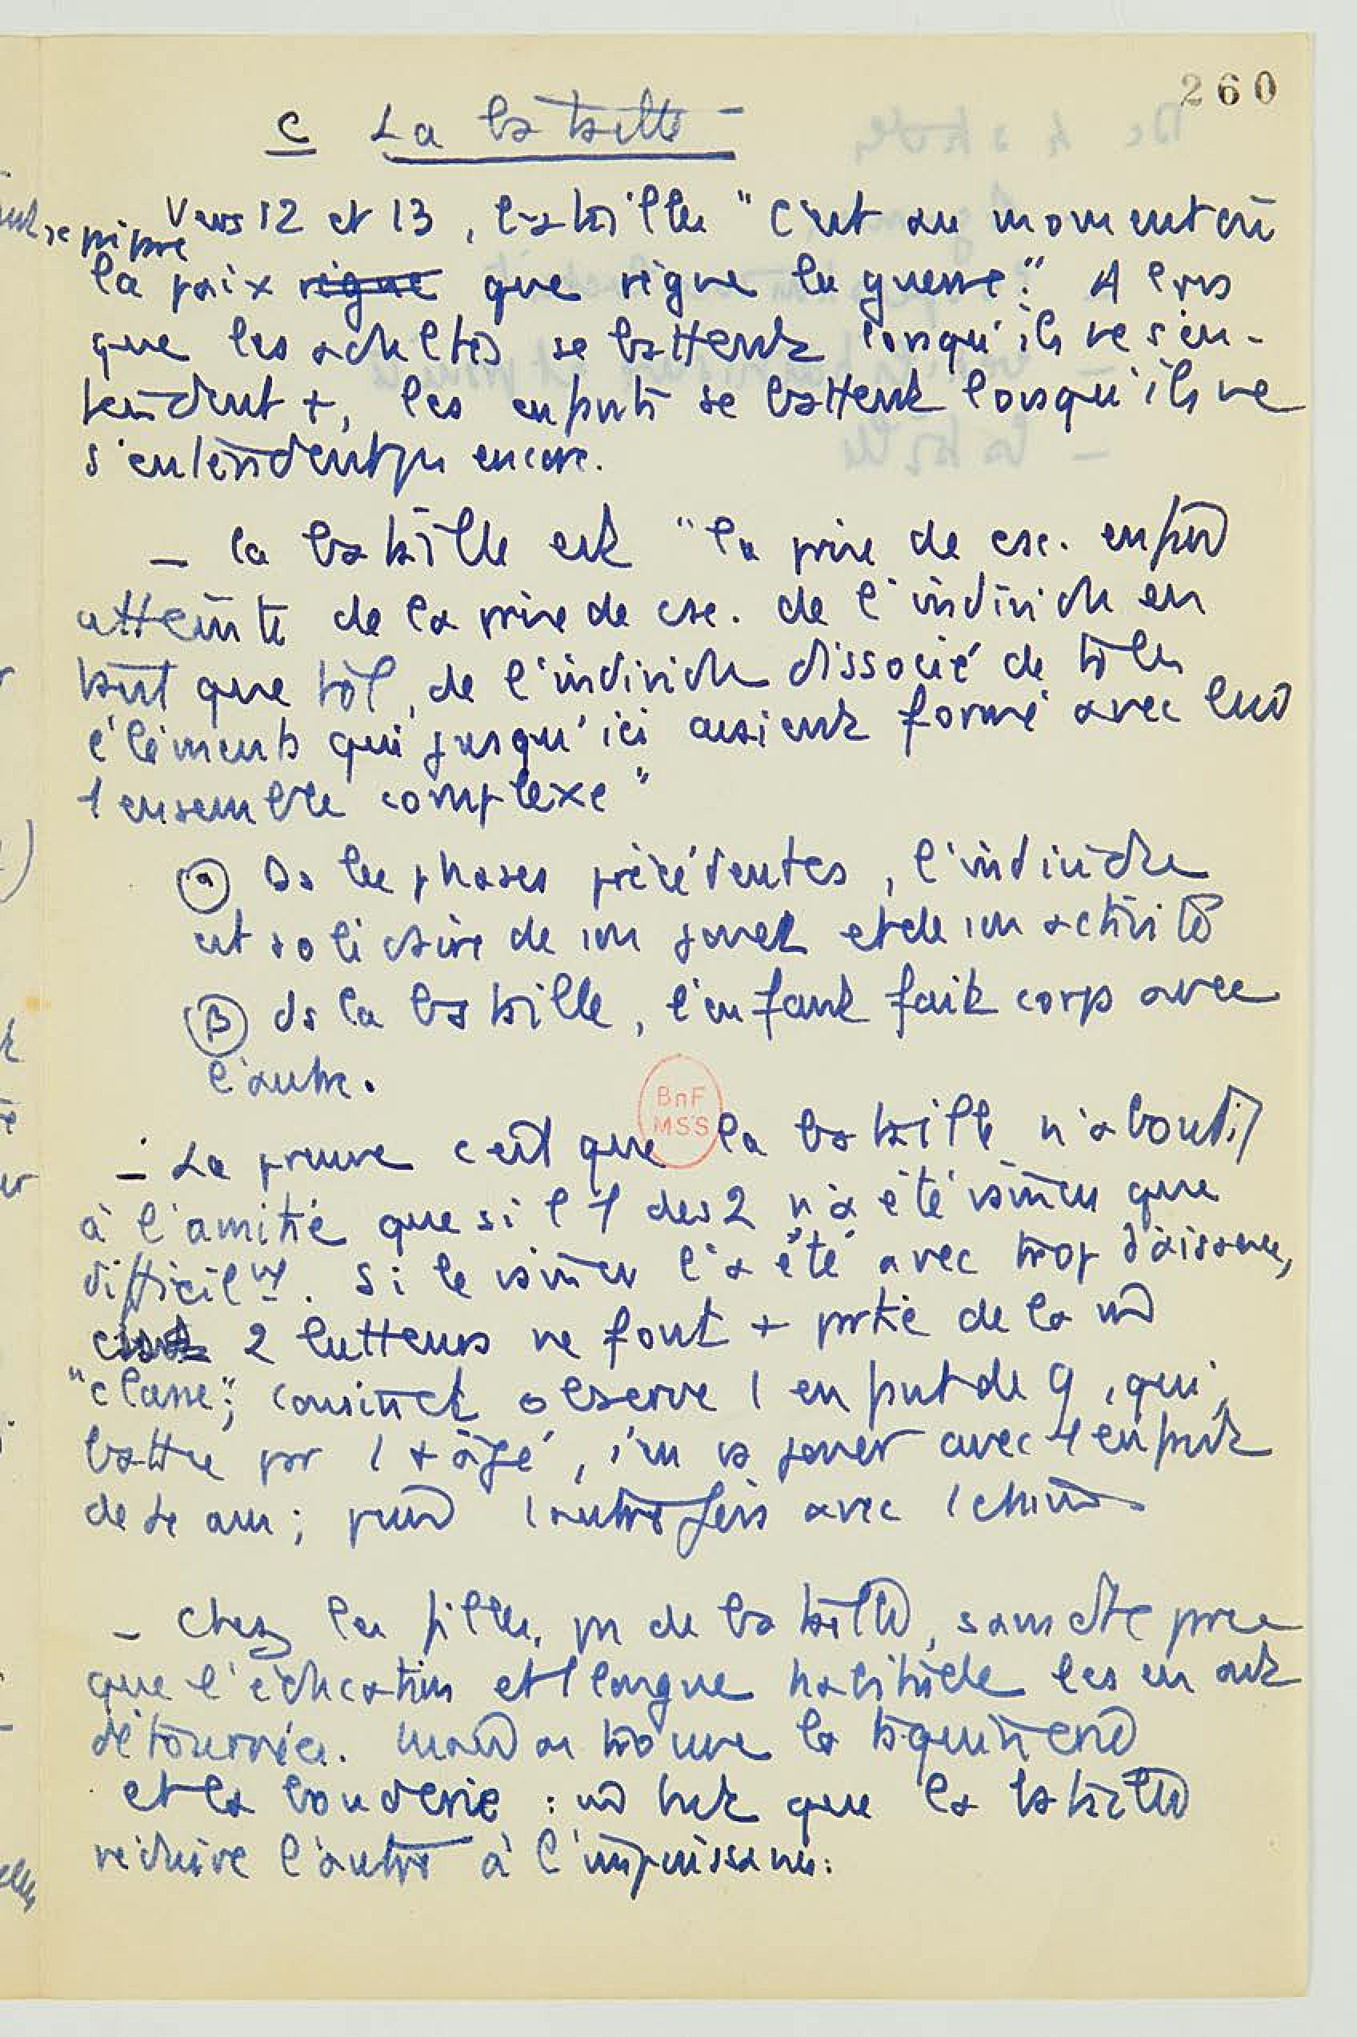 260
C La bataille –
Vers 12 et 13, bataille "C'est au moment où
se prépare
la paix règne que règne la guerre". Alors
que les adultes se battent lorsqu'ils ne s'en-
tendent +, les enfants se battent lorsqu'ils ne
s'entendent pas encore.
– la bataille est "la prise de csc. enfin
atteinte de la prise de csc. de l'individu en
tant que tel, de l'individu dissocié de tous les
éléments qui jusqu'ici avaient formé avec lui
1 ensemble complexe"
(α) Ds les phases précédentes, l'individu
est solidaire de son jouet et de son activité
(β) ds la bataille, l'enfant fait corps avec
l'autre.
– La preuve c'est que la bataille n'aboutit
à l'amitié que si l'1 des 2 n'a été vaincu que
difficilmt. Si le vaincu l'a été avec trop d'aisance,
2 lutteurs ne font + partie de la m̂
"classe"; Cousinet observe 1 enfant de 9, qui,
battu par 1 + âgé, s'en va jouer avec 1 enfant
de 4 ans; puis 1 autre fois avec 1 chien
– Chez les filles, pas de bataille, sans dte parce
que l'éducation et 1 longue habitude les en ont
détournées. Mais on trouve la taquinerie
et la bouderie : m̂ but que la bataille
réduire l'autre à l'impuissance.
BnF
MSS